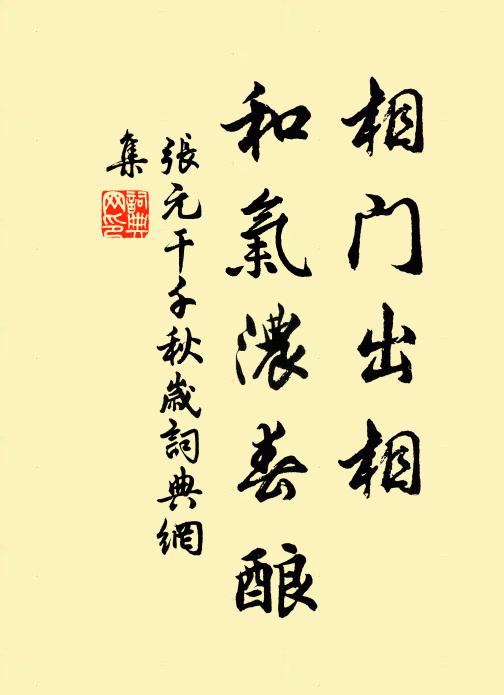 相门出相
和氣濃春酿
張元干千秋歲詞典網
集
詞典网印